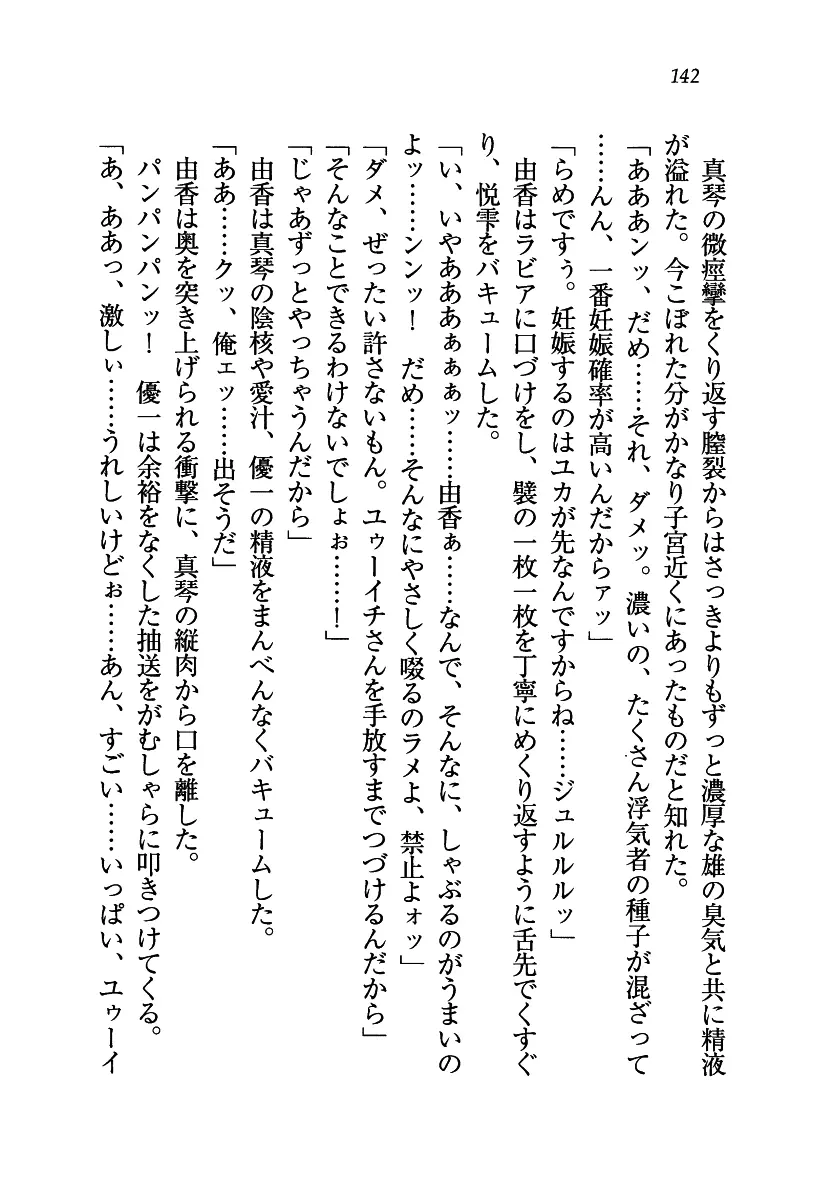 142
真琴の微痙攣をくり返す膣裂からはさっきよりもずっと濃厚な雄の臭気と共に精液
が溢れた。今こぼれた分がかなり子宮近くにあったものだと知れた。
「あああンッ、だめ……それ、ダメッ。濃いの、たくさん浮気者の種子が混ざって
……んん、一番妊娠確率が高いんだからァッ」
「らめですぅ。妊娠するのはユカが先なんですからね……ジュルルルッ」
由香はラビアに口づけをし、襞の一枚一枚を丁寧にめくり返すように舌先でくすぐ
り、悦雫をバキュームした。
「い、いやあああぁぁぁッ……由香ぁ……なんで、そんなに、しゃぶるのがうまいの
よッ……ンンッ！　だめ……そんなにやさしく啜るのラメよ、禁止よォッ」
「ダメ、ぜったい許さないもん。ユゥーイチさんを手放すまでつづけるんだから」
「そんなことできるわけないでしょぉ……！」
「じゃあずっとやっちゃうんだから」
由香は真琴の陰核や愛汁、優一の精液をまんべんなくバキュームした。
「ああ……クッ、俺ェッ……出そうだ」
由香は奥を突き上げられる衝撃に、真琴の縦肉から口を離した。
パンパンパンッ！　優一は余裕をなくした抽送をがむしゃらに叩きつけてくる。
「あ、ああっ、激しぃ……うれしいけどぉ……あん、すごい……いっぱい、ユゥーイ